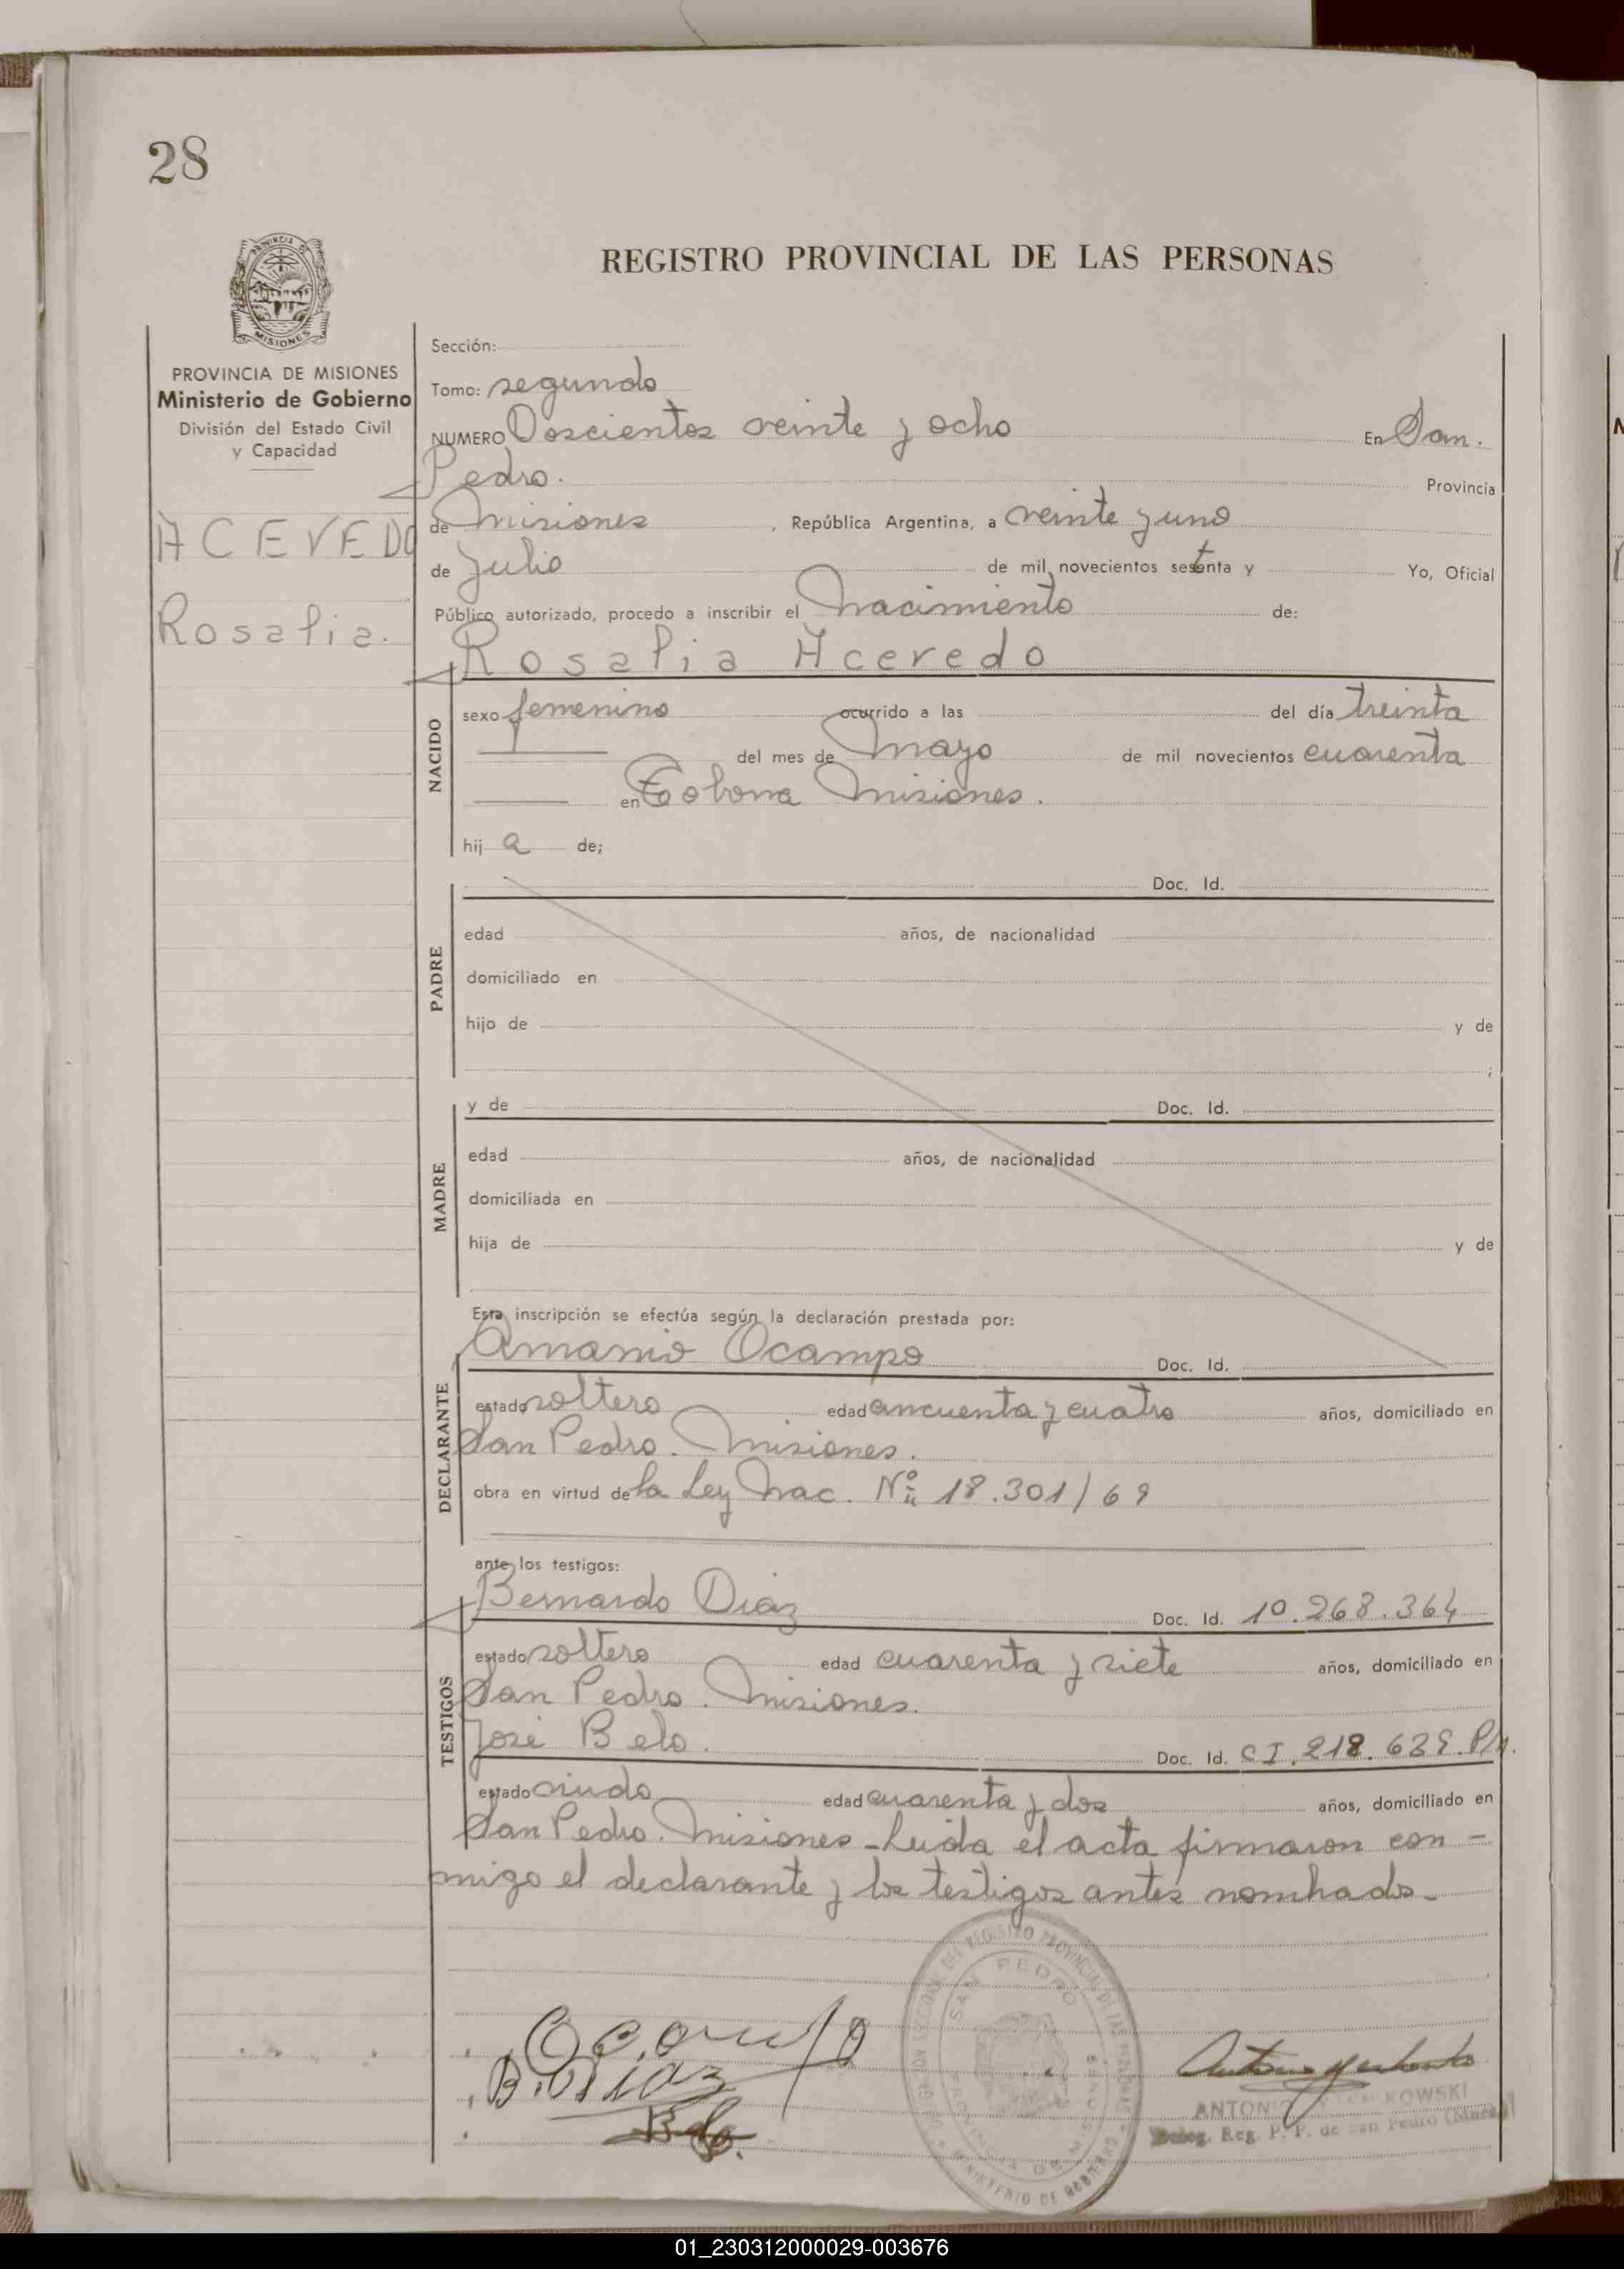 28
REGISTRO PROVINCIAL DE LAS PERSONAS
MISIONES
PROVINCIA DE MISIONES
Ministerio de Gobierno
División del Estado Civil
y Capacidad
ACEVEDO
Rosalia.
Sección:
Tomo: segundo
NUMERO Doscientos veinte y ocho En San.
Pedro. Provincia
de Misiones , República Argentina, a veinte y uno
de Julio de mil novecientos setenta y Yo, Oficial
Público autorizado, procedo a inscribir el Nacimiento de:
Rosalia Acevedo
NACIDO
sexo femenino ocurrido a las del día treinta
del mes de Mayo de mil novecientos cuarenta
en Misiones.
hij a de;
PADRE
Doc. Id.
edad años, de nacionalidad
domiciliado en
hijo de y de
;
MADRE
y de Doc. Id.
edad años, de nacionalidad
domiciliada en
hija de y de
Esta inscripción se efectúa según la declaración prestada por:
DECLARANTE
Amanio Ocampo Doc. Id.
estado soltero edad cincuenta y cuatro años, domiciliado en
San Pedro. Misiones.
obra en virtud de la Ley Nac. Nº 18.301/69
ante los testigos:
TESTIGOS
Bernardo Diaz Doc. Id. 10.268.364
estado soltero edad cuarenta y siete años, domiciliado en
San Pedro. Misiones.
José Belo. Doc. Id. CI. 218.639.
estado viudo edad cuarenta y dos años, domiciliado en
San Pedro. Misiones - Leida el acta firmaron con -
migo el declarante y los testigos antes nombrados.
Ocampo
B. Diaz
SAN PEDRO
PROVINCIA DE MISIONES
MINISTERIO DE GOBIERNO
Deleg. Reg. P. P. de San Pedro
01_230312000029-003676